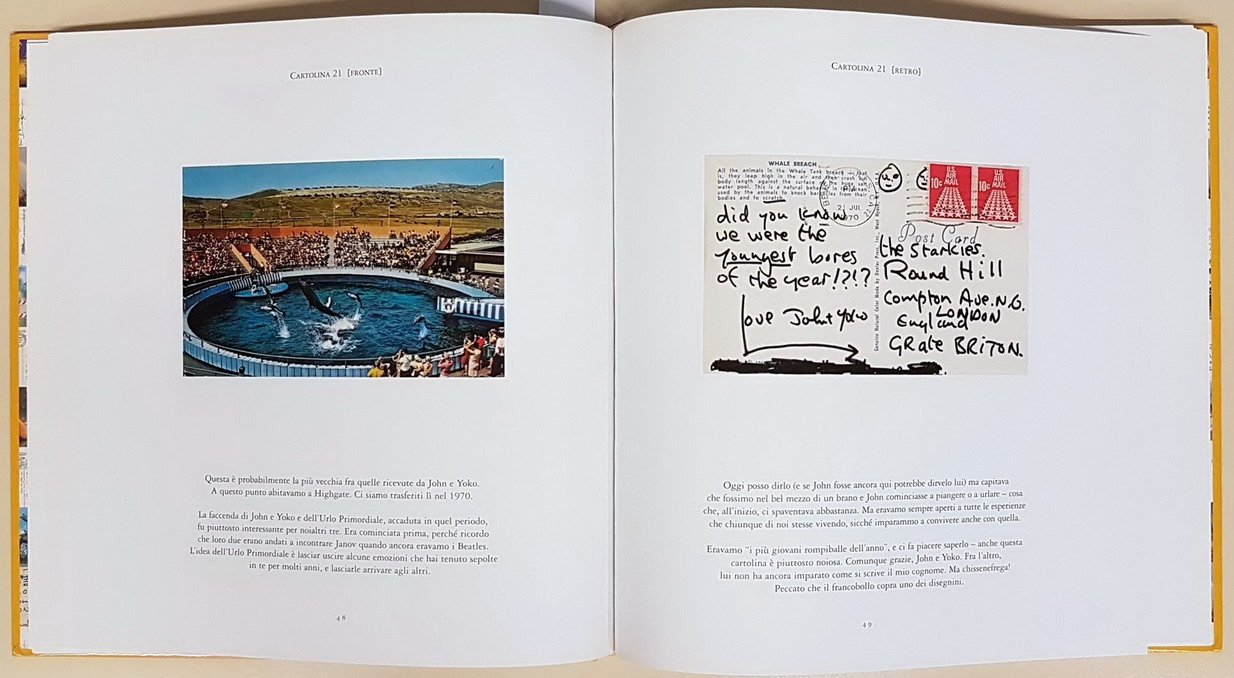 CARTOLINA 21 [FRONTE]
Questa è probabilmente la più vecchia fra quelle ricevute da John e Yoko.
A questo punto abitavamo a Highgate. Ci siamo trasferiti lì nel 1970.
La faccenda di John e Yoko e dell'Urlo Primordiale, accaduta in quel periodo,
fu piuttosto interessante per noialtri tre. Era cominciata prima, perché ricordo
che loro due erano andati a incontrare Janov quando ancora eravamo i Beatles.
L'idea dell'Urlo Primordiale è lasciar uscire alcune emozioni che hai tenuto sepolte
in te per molti anni, e lasciarle arrivare agli altri.
48
CARTOLINA 21 [RETRO]
WHALE BREACH
All the animals in the Whale Tank breach that
is, they leap high in the air and then crash full
body length against the surface of the huge salt
water pool. This is a natural behavior in the ocean,
used by the animals to knock barnacles from their
bodies and to scratch.
did you know
we were the
youngest bores
of the year!?!?
love John+Yoko
21 JUL
1970
U.S.
AIR
MAIL
10c
U.S.
AIR
MAIL
10c
Post Card
the Starkies.
Round Hill
Compton Ave. N.6.
LONDON
England
GRate BRITON.
Oggi posso dirlo (e se John fosse ancora qui potrebbe dirvelo lui) ma capitava
che fossimo nel bel mezzo di un brano e John cominciasse a piangere o a urlare – cosa
che, all'inizio, ci spaventava abbastanza. Ma eravamo sempre aperti a tutte le esperienze
che chiunque di noi stesse vivendo, sicché imparammo a convivere anche con quella.
Eravamo "i più giovani rompiballe dell'anno", e ci fa piacere saperlo – anche questa
cartolina è piuttosto noiosa. Comunque grazie, John e Yoko. Fra l'altro,
lui non ha ancora imparato come si scrive il mio cognome. Ma chissenefrega!
Peccato che il francobollo copra uno dei disegnini.
49